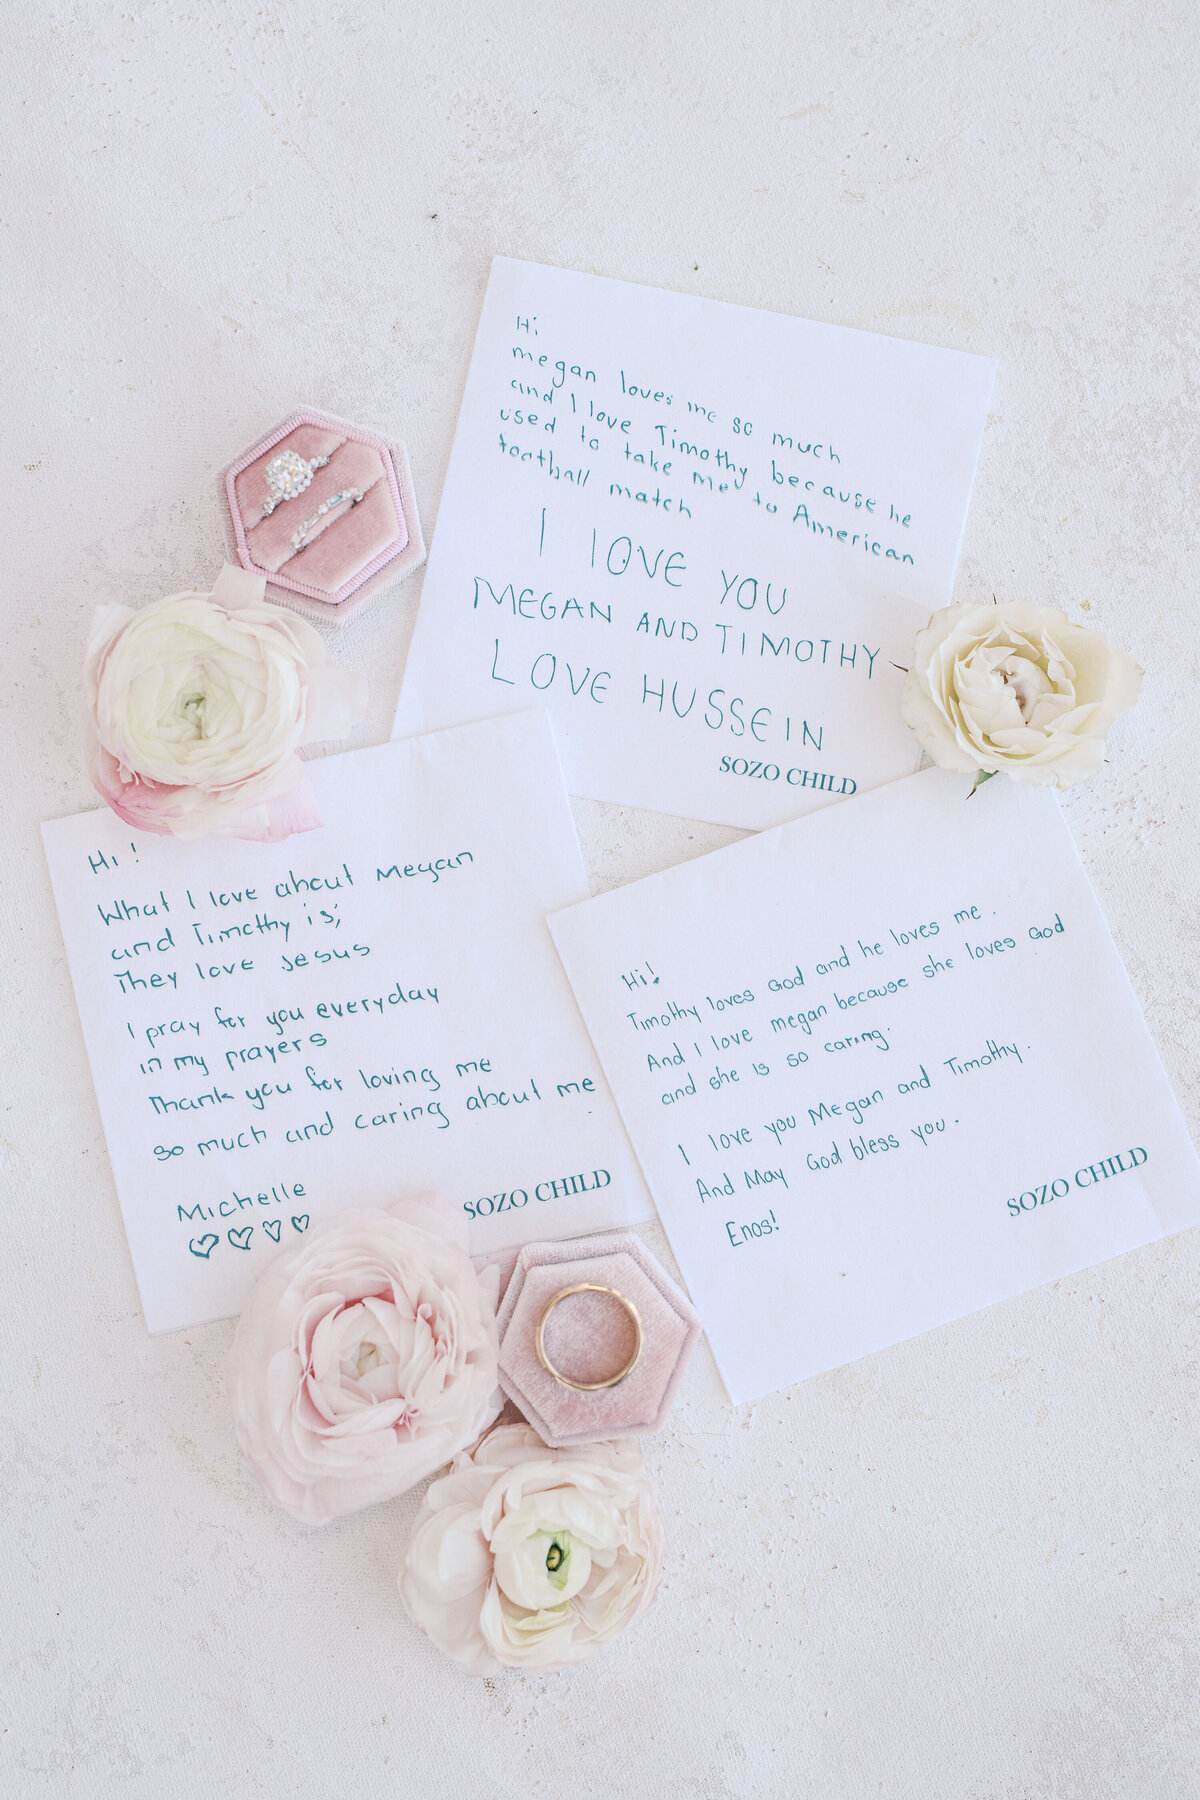 Hi
megan loves me so much
and I love Timothy because he
used to take me to American
football match
I love YOU
MEGAN AND TIMOTHY
LOVE HUSSEIN
SOZO CHILD
Hi!
What I love about Megan
and Timothy is;
They love Jesus
I pray for you everyday
in my prayers
Thank you for loving me
so much and caring about me
Michelle
SOZO CHILD
Hi!
Timothy loves God and he loves me.
And I love megan because she loves God
and she is so caring.
I love you Megan and Timothy.
And May God bless you.
Enos!
SOZO CHILD